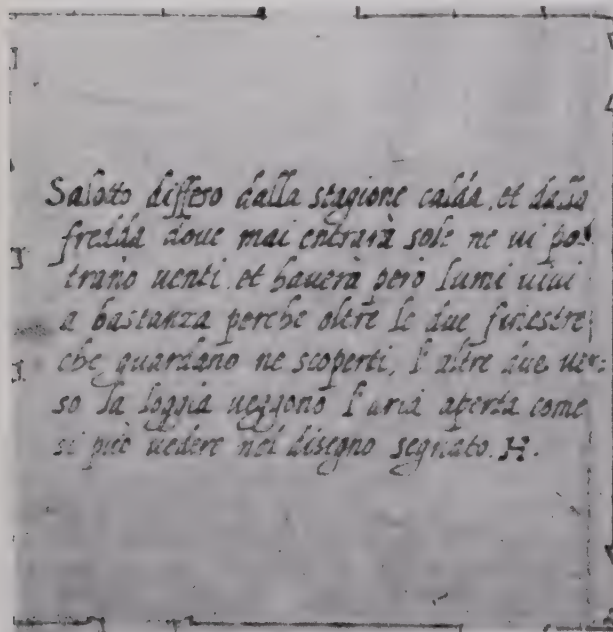 Salotto diffeso dalla stagione calda, et dalla
fredda doue mai entrarà sole ne ui pot
trano uenti, et hauerà però lumi uiui
a bastanza perche oltre le due finestre
che guardano ne scoperti, l'altre due uer:
so la loggia ueggono l'aria aperta come
si può uedere nel disegno segnato. H.